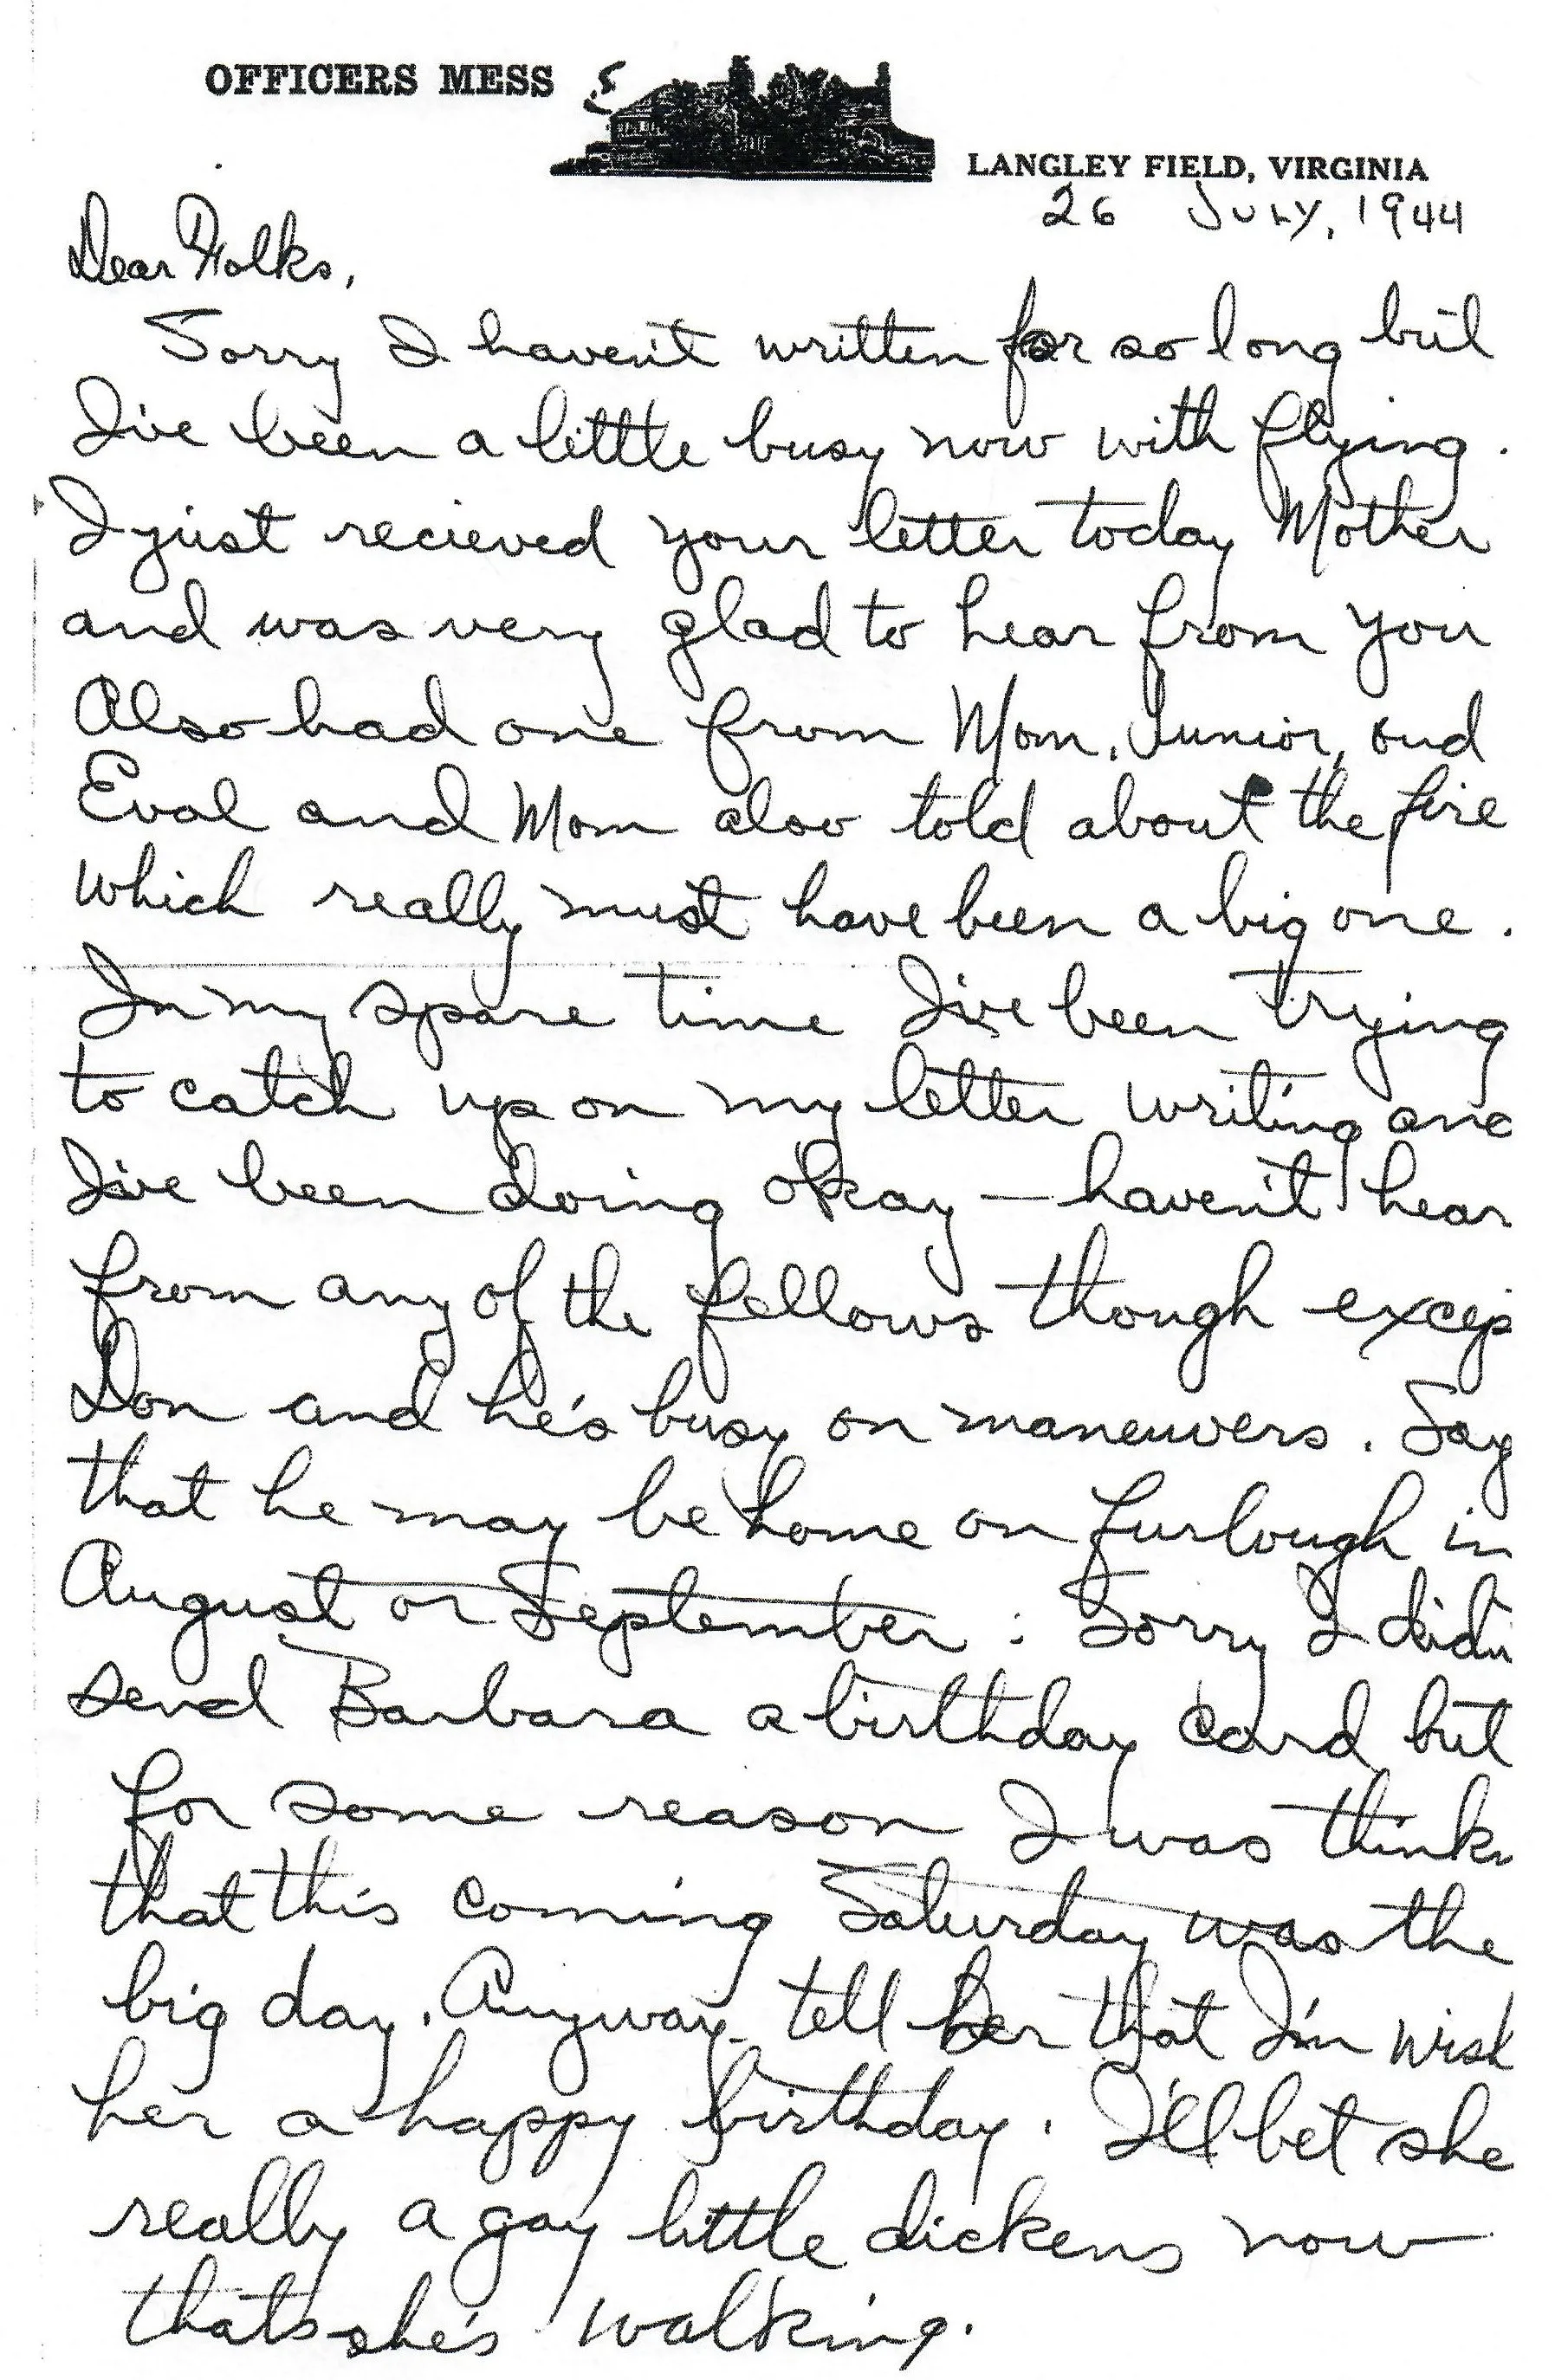 OFFICERS MESS
LANGLEY FIELD, VIRGINIA
26 JULY, 1944
Dear Folks,
Sorry I haven't written for so long but
I've been a little busy now with flying.
I just recieved your letter today Mother
and was very glad to hear from you
Also had one from Mom, Junior, and
Eval and Mom also told about the fire
which really must have been a big one.
In my spare time I've been trying
to catch up on my letter writing and
I've been doing okay — haven't hear
from any of the fellows though excep
Don and he's busy on maneuvers. Say
that he may be home on furlough in
August or September. Sorry I didn
send Barbara a birthday card but
for some reason I was think
that this coming Saturday was the
big day. Anyway tell her that I'm wish
her a happy birthday. I'll bet she
really a gay little dickens now
thats she's walking.